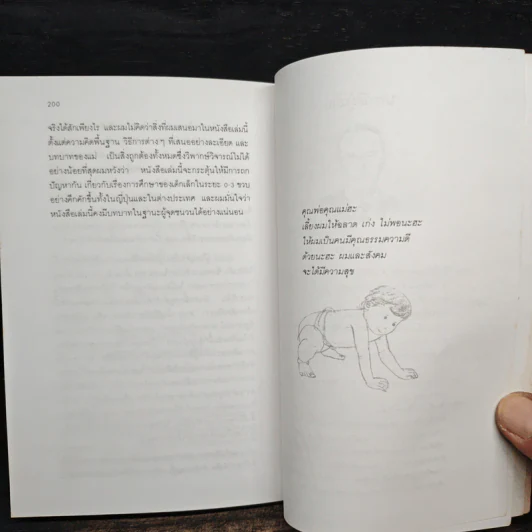 200
จริงได้สักเพียงไร และผมไม่คิดว่าสิ่งที่ผมเสนอมาในหนังสือเล่มนี้
ตั้งแต่ความคิดพื้นฐาน วิธีการต่างๆ ที่เสนออย่างละเอียด และ
บทบาทของแม่ เป็นสิ่งถูกต้องทั้งหมดซึ่งวิพากษ์วิจารณ์ไม่ได้
อย่างน้อยที่สุดผมหวังว่า หนังสือเล่มนี้จะกระตุ้นให้มีการถก
ปัญหากัน เกี่ยวกับเรื่องการศึกษาของเด็กเล็กในระยะ ๐-๓ ขวบ
อย่างคึกคักขึ้นทั้งในญี่ปุ่นและในต่างประเทศ และผมมั่นใจว่า
หนังสือเล่มนี้คงมีบทบาทในฐานะผู้จุดชนวนได้อย่างแน่นอน
คุณพ่อคุณแม่ฮะ
เลี้ยงผมให้ฉลาด เก่ง ไม่พอนะฮะ
ให้ผมเป็นคนมีคุณธรรมความดี
ด้วยนะฮะ ผมและสังคม
จะได้มีความสุข